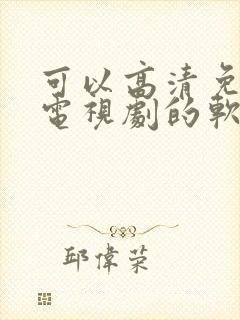 可以高清免
電視劇的軟
邱偉榮